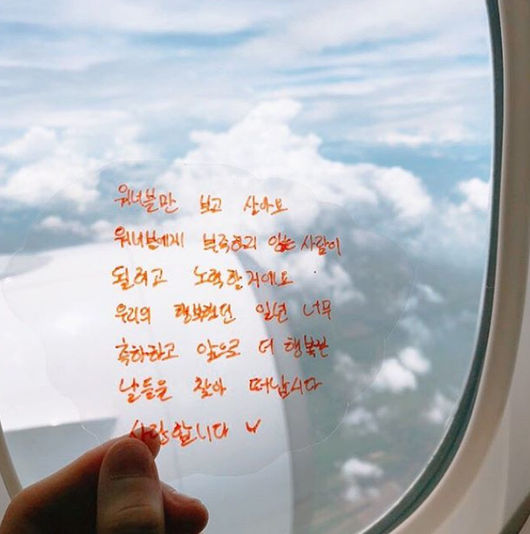 워너블만 보고 살아요
워너블에게 부족하지 않는 사람이
될려고 노력할거에요.
우리의 행복했던 일년 너무
축하하고 앞으로 더 행복한
날들을 찾아 떠납시다
사랑합니다